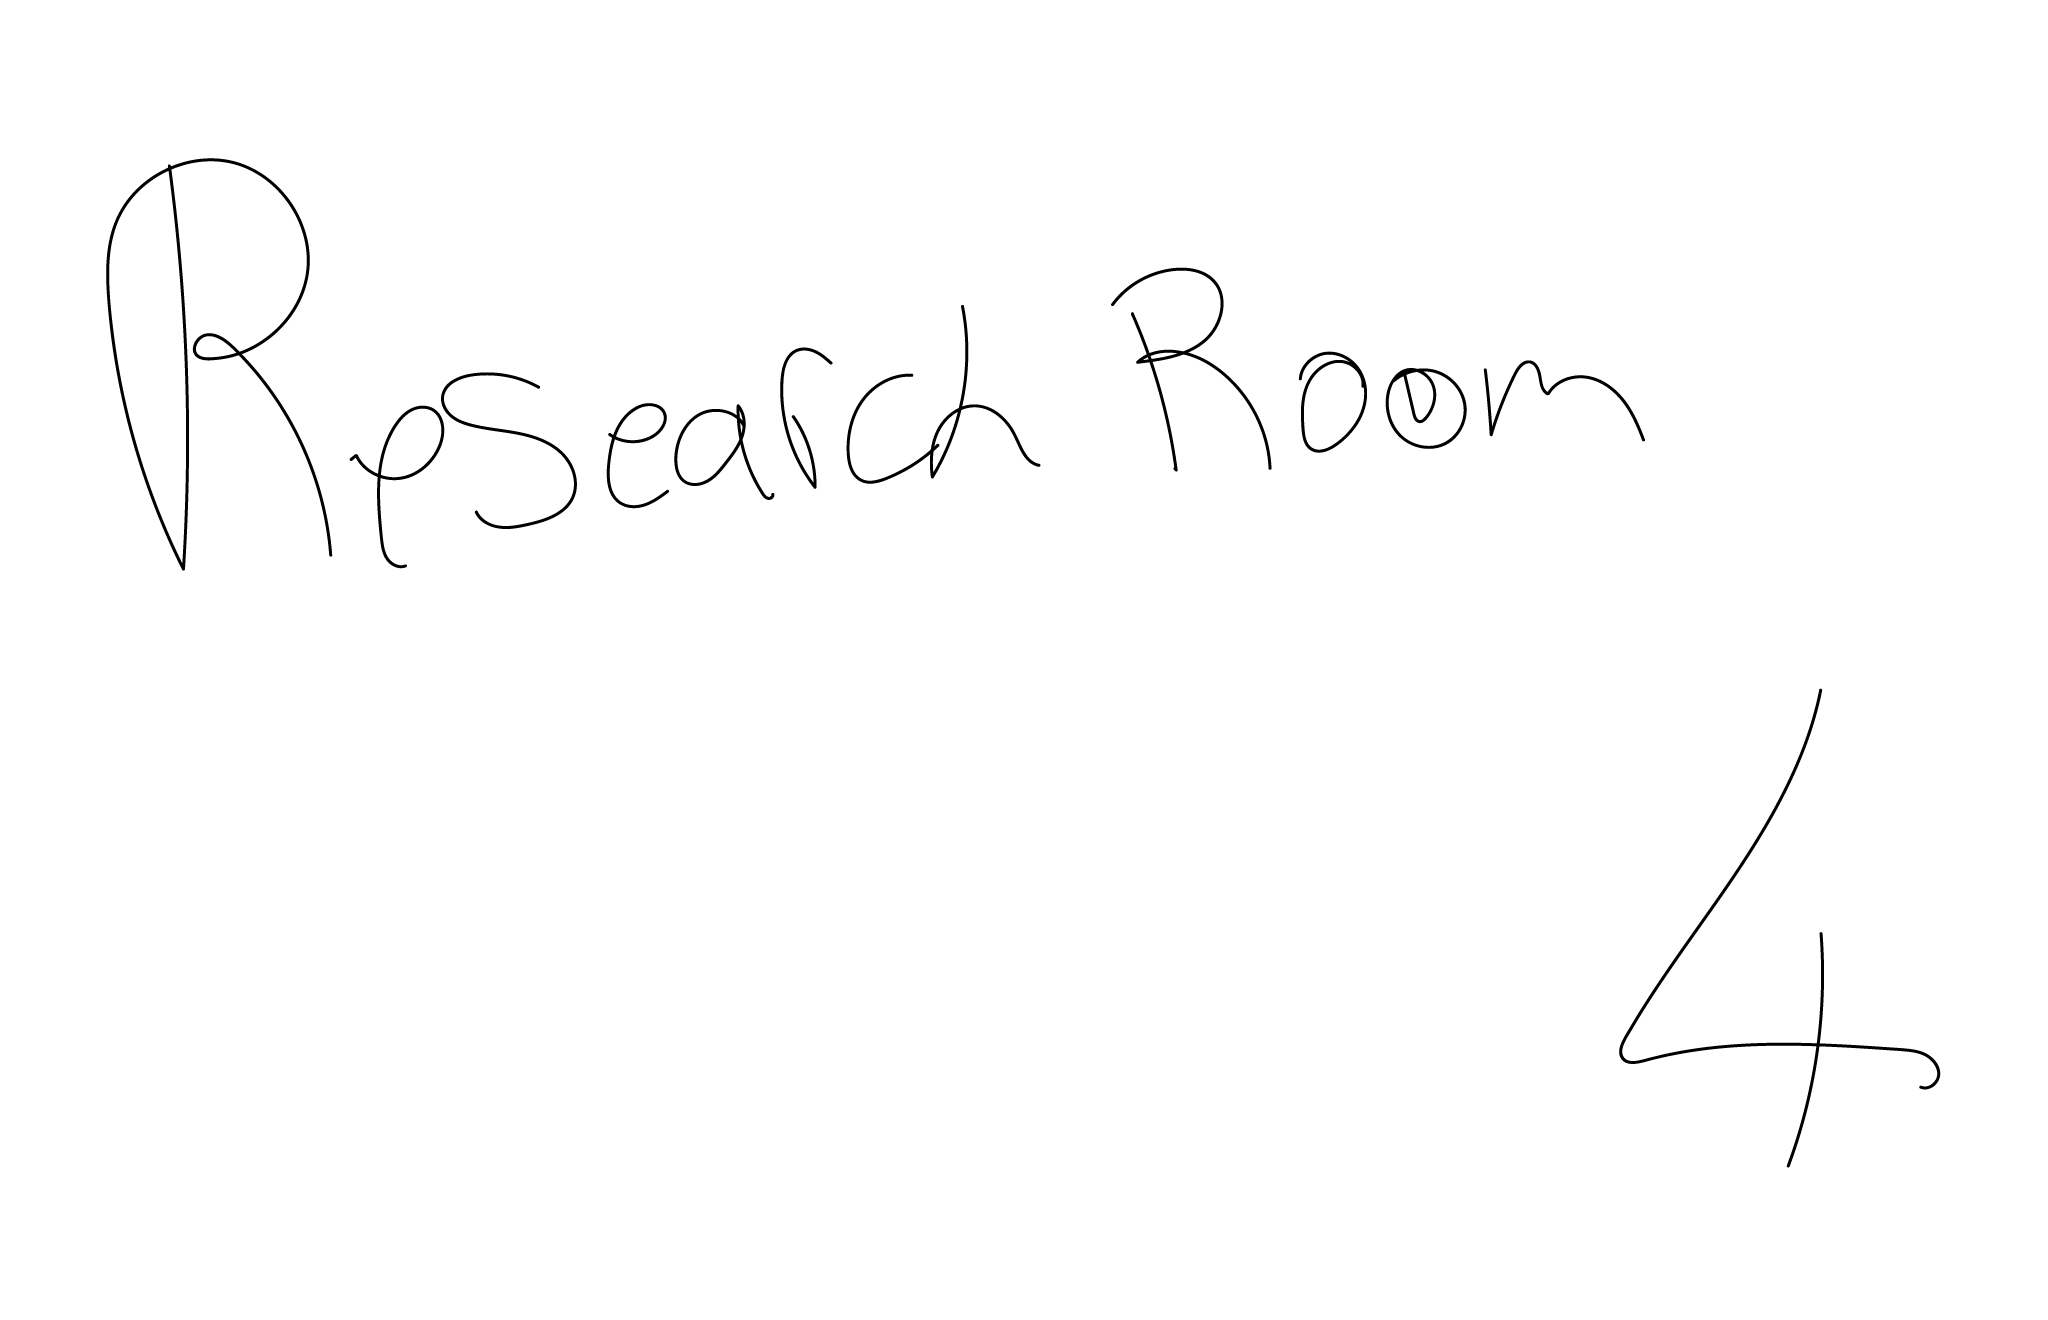 Research Room
4